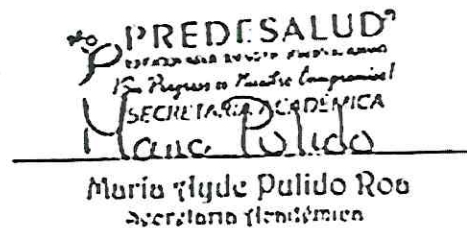 PREDESALUD
¡Su Progreso es Nuestro Compromiso!
SECRETARIA ACADÉMICA
Maria Pulido
María Hyde Pulido Roa
Secretaria Académica